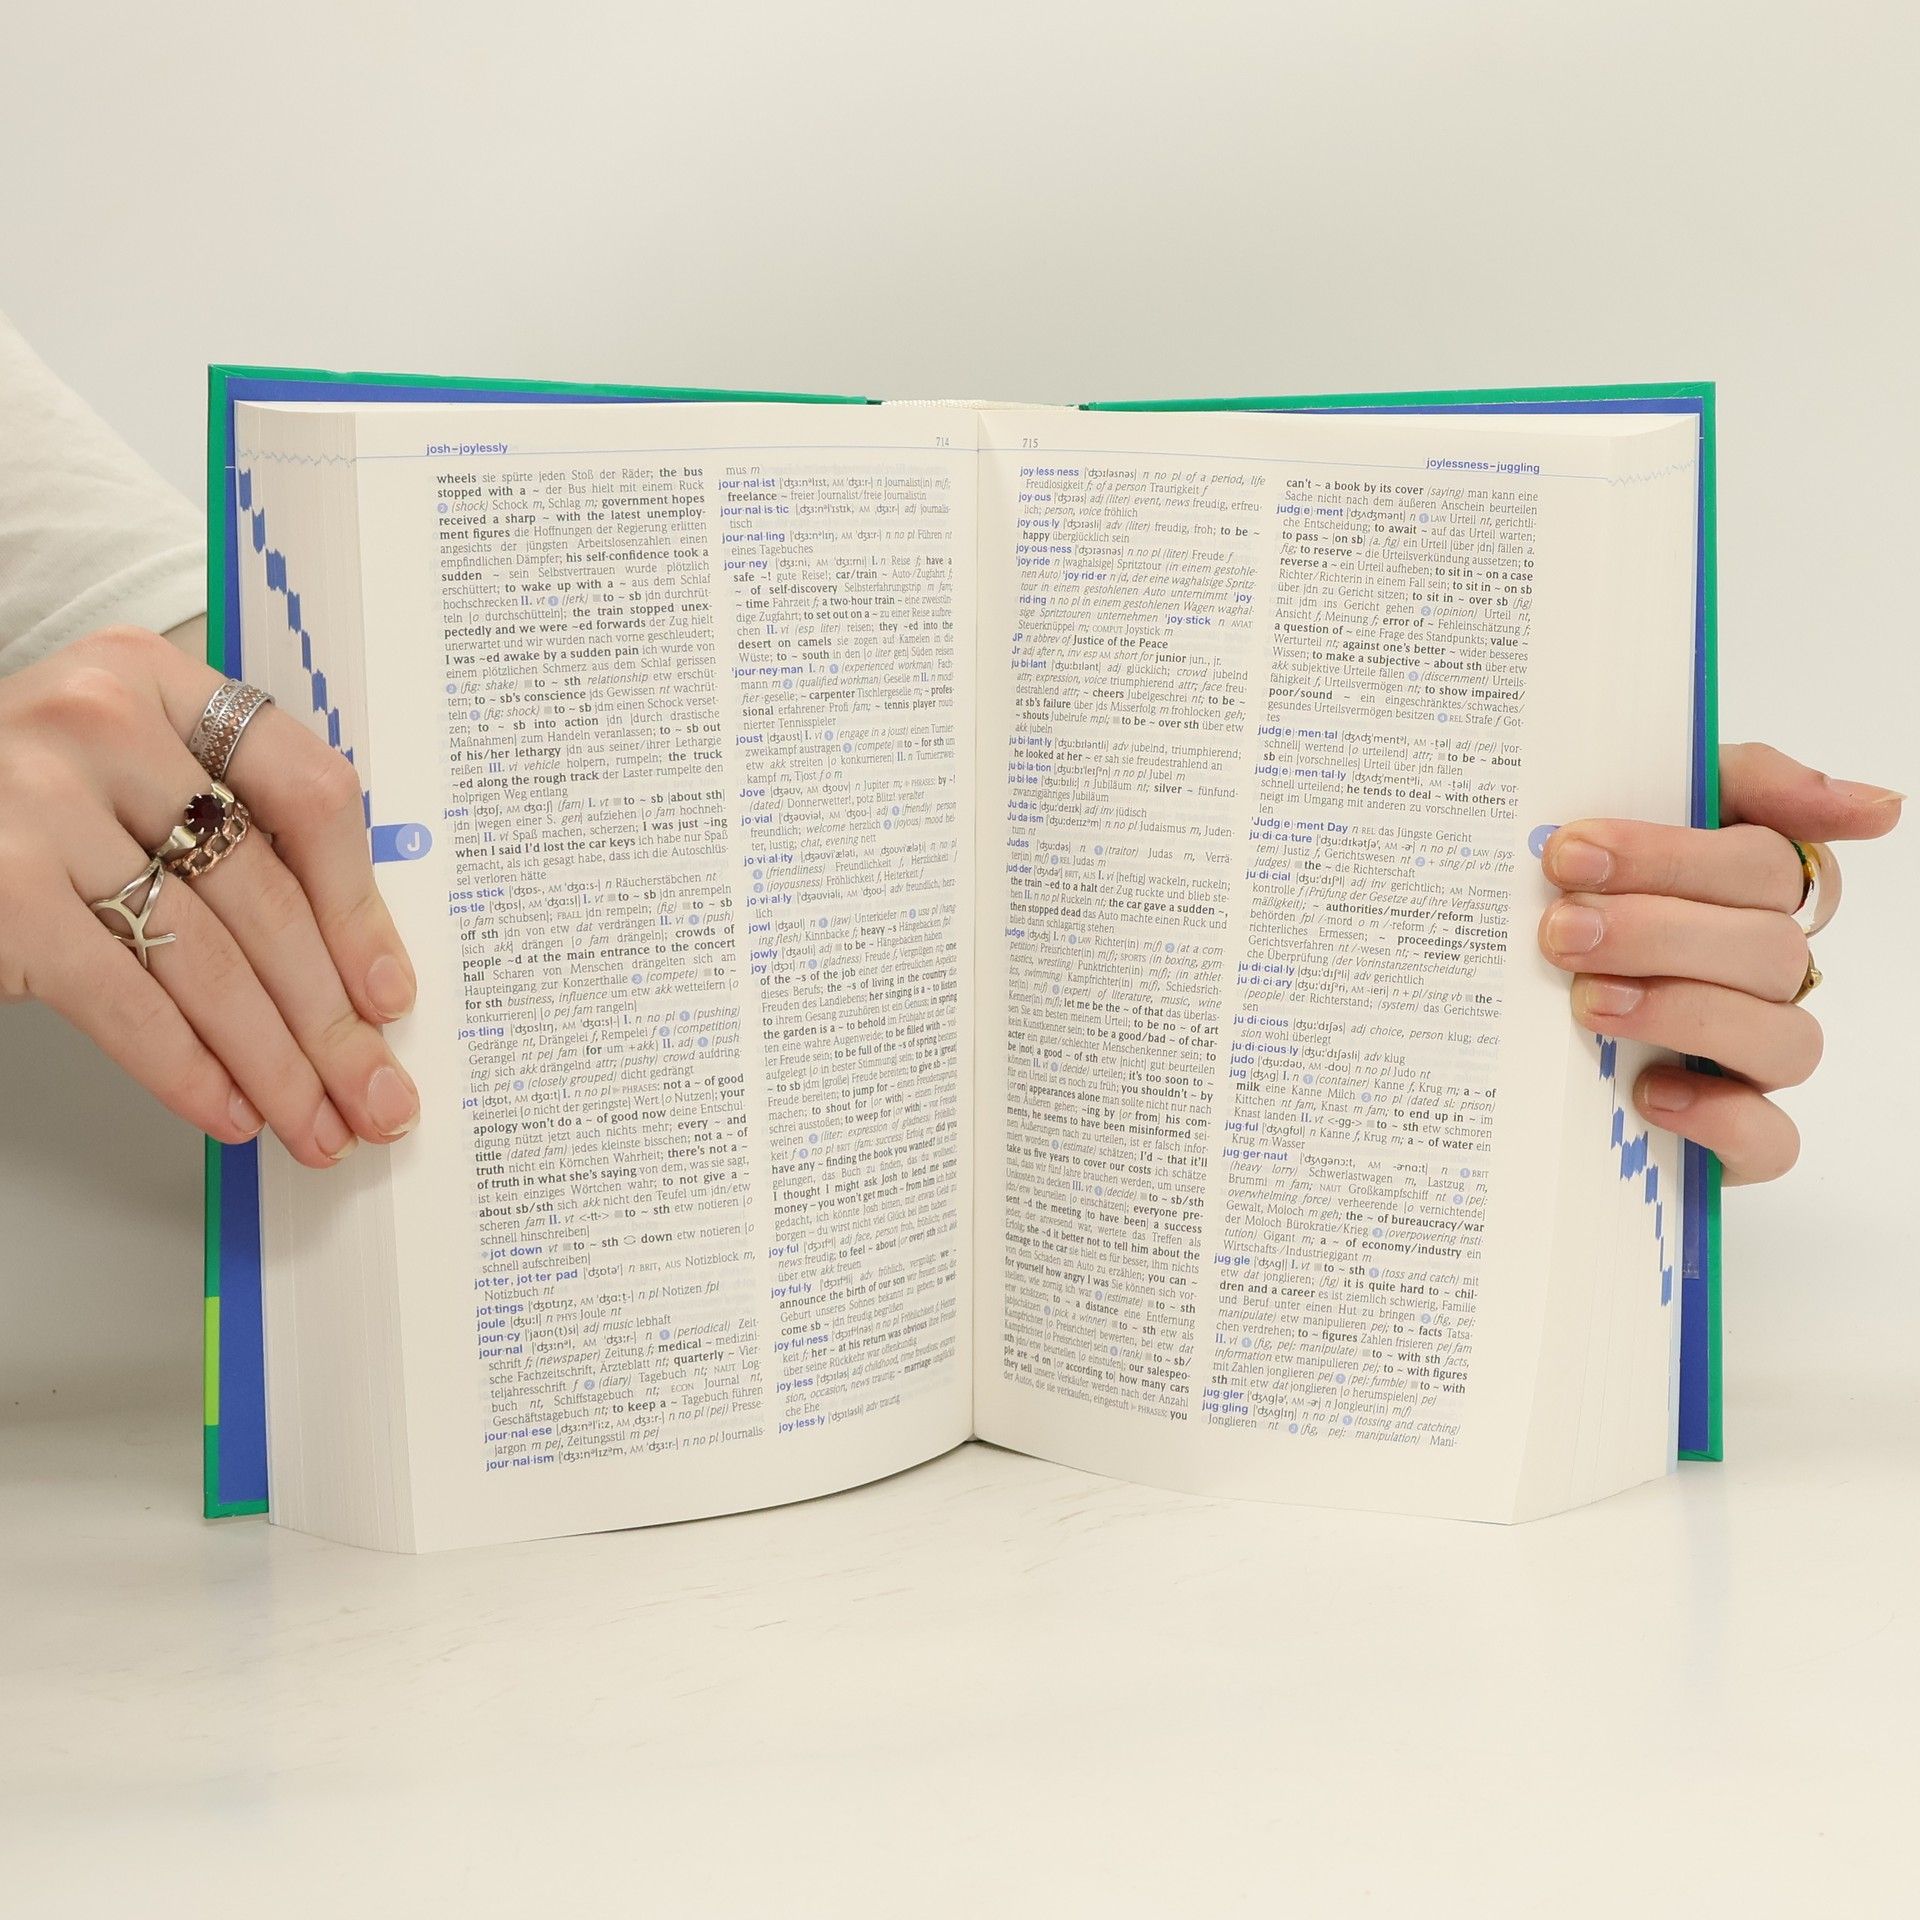 josh–joylessly
714
wheels sie spürte jeden Stoß der Räder; the bus
stopped with a ~ der Bus hielt mit einem Ruck
❷ (shock) Schock m, Schlag m; government hopes
received a sharp ~ with the latest unemploy-
ment figures die Hoffnungen der Regierung erlitten
angesichts der jüngsten Arbeitslosenzahlen einen
empfindlichen Dämpfer; his self-confidence took a
sudden ~ sein Selbstvertrauen wurde plötzlich
erschüttert; to wake up with a ~ aus dem Schlaf
hochschrecken II. vt ❶ (jerk) ■to ~ sb jdn durchrüt-
teln [o durchschütteln]; the train stopped unex-
pectedly and we were ~ed forwards der Zug hielt
unerwartet und wir wurden nach vorne geschleudert;
I was ~ed awake by a sudden pain ich wurde von
einem plötzlichen Schmerz aus dem Schlaf gerissen
❷ (fig: shake) ■to ~ sth relationship etw erschüt-
tern; to ~ sb's conscience jds Gewissen nt wachrüt-
teln ❸ (fig: shock) ■to ~ sb jdm einen Schock verset-
zen; to ~ sb into action jdn [durch drastische
Maßnahmen] zum Handeln veranlassen; to ~ sb out
of his/her lethargy jdn aus seiner/ihrer Lethargie
reißen III. vi vehicle holpern, rumpeln; the truck
~ed along the rough track der Laster rumpelte den
holprigen Weg entlang
josh [dʒɒʃ, AM dʒɑ:ʃ] (fam) I. vt ■to ~ sb [about sth]
jdn [wegen einer S. gen] aufziehen [o fam hochneh-
men] II. vi Spaß machen, scherzen; I was just ~ing
when I said I'd lost the car keys ich habe nur Spaß
gemacht, als ich gesagt habe, dass ich die Autoschlüs-
sel verloren hätte
joss stick ['dʒɒs-, AM 'dʒɑ:s-] n Räucherstäbchen nt
jos·tle ['dʒɒsl, AM 'dʒɑ:sl] I. vt ■to ~ sb jdn anrempeln
[o fam schubsen]; FBALL jdn rempeln; (fig) ■to ~ sb
off sth jdn von etw dat verdrängen II. vi ❶ (push)
[sich akk] drängen [o fam drängeln]; crowds of
people ~d at the main entrance to the concert
hall Scharen von Menschen drängelten sich am
Haupteingang zur Konzerthalle ❷ (compete) ■to ~
for sth business, influence um etw akk wetteifern [o
konkurrieren] [o pej fam rangeln]
jos·tling ['dʒɒslɪŋ, AM 'dʒɑ:sl-] I. n no pl ❶ (pushing)
Gedränge nt, Drängelei f, Rempelei f ❷ (competition)
Gerangel nt pej fam (for um +akk) II. adj ❶ (push
ing) sich akk drängelnd attr; (pushy) crowd aufdring-
lich pej ❷ (closely grouped) dicht gedrängt
jot [dʒɒt, AM dʒɑ:t] I. n no pl ▶ PHRASES: not a ~ of good
keinerlei [o nicht der geringste] Wert [o Nutzen]; your
apology won't do a ~ of good now deine Entschul-
digung nützt jetzt auch nichts mehr; every ~ and
tittle (dated fam) jedes kleinste bisschen; not a ~ of
truth nicht ein Körnchen Wahrheit; there's not a ~
of truth in what she's saying von dem, was sie sagt,
ist kein einziges Wörtchen wahr; to not give a ~
about sb/sth sich akk nicht den Teufel um jdn/etw
scheren fam II. vt <-tt-> ■to ~ sth etw notieren [o
schnell hinschreiben]
◆jot down vt ■to ~ sth ⇆ down etw notieren [o
schnell aufschreiben]
jot·ter, jot·ter pad ['dʒɒtəʳ] n BRIT, AUS Notizblock m,
Notizbuch nt
jot·tings ['dʒɒtɪŋz, AM 'dʒɑ:t̬-] n pl Notizen fpl
joule [dʒu:l] n PHYS Joule nt
joun·cy ['jaʊn(t)si] adj music lebhaft
jour·nal ['dʒɜ:nᵊl, AM 'dʒɜ:r-] n ❶ (periodical) Zeit-
schrift f; (newspaper) Zeitung f; medical ~ medizini-
sche Fachzeitschrift, Ärzteblatt nt; quarterly ~ Vier-
teljahresschrift f ❷ (diary) Tagebuch nt; NAUT Log-
buch nt, Schiffstagebuch nt; ECON Journal nt,
Geschäftstagebuch nt; to keep a ~ Tagebuch führen
jour·nal·ese [ˌdʒɜ:nᵊl'i:z, AM ˌdʒɜ:r-] n no pl (pej) Presse-
jargon m pej, Zeitungsstil m pej
jour·nal·ism ['dʒɜ:nᵊlɪzᵊm, AM 'dʒɜ:r-] n no pl Journalis-
mus m
jour·nal·ist ['dʒɜ:nᵊlɪst, AM 'dʒɜ:r-] n Journalist(in) m(f);
freelance ~ freier Journalist/freie Journalistin
jour·nal·is·tic [ˌdʒɜ:nᵊl'ɪstɪk, AM ˌdʒɜ:r-] adj journalis-
tisch
jour·nal·ling ['dʒɜ:nᵊlɪŋ, AM 'dʒɜ:r-] n no pl Führen nt
eines Tagebuches
jour·ney ['dʒɜ:ni, AM 'dʒɜ:rni] I. n Reise f; have a
safe ~! gute Reise!; car/train ~ Auto-/Zugfahrt f;
~ of self-discovery Selbsterfahrungstrip m fam;
~ time Fahrzeit f; a two-hour train ~ eine zweistün-
dige Zugfahrt; to set out on a ~ zu einer Reise aufbre-
chen II. vi (esp liter) reisen; they ~ed into the
desert on camels sie zogen auf Kamelen in die
Wüste; to ~ south in den [o liter gen] Süden reisen
'jour·ney·man I. n ❶ (experienced workman) Fach-
mann m ❷ (qualified workman) Geselle m II. n modi
fier -geselle; ~ carpenter Tischlergeselle m; ~ profes-
sional erfahrener Profi fam; ~ tennis player rou-
nierter Tennisspieler
joust [dʒaʊst] I. vi ❶ (engage in a joust) einen Turnier-
zweikampf austragen ❷ (compete) ■to ~ for sth um
etw akk streiten [o konkurrieren] II. n Turnierzwei-
kampf m, Tjost f o m
Jove [dʒəʊv, AM dʒoʊv] n Jupiter m; ▶ PHRASES: by ~!
(dated) Donnerwetter!, potz Blitz! veraltet
jo·vial ['dʒəʊviəl, AM 'dʒoʊ-] adj ❶ (friendly) person
freundlich; welcome herzlich ❷ (joyous) mood hei-
ter, lustig; chat, evening nett
jo·vi·al·ity [ˌdʒəʊvi'æləti, AM ˌdʒoʊvi'æləti] n no pl
❶ (friendliness) Freundlichkeit f, Herzlichkeit f
❷ (joyousness) Fröhlichkeit f, Heiterkeit f
jo·vi·al·ly ['dʒəʊviəli, AM 'dʒoʊ-] adv freundlich, herz-
lich
jowl [dʒaʊl] n ❶ (jaw) Unterkiefer m ❷ usu pl (hang
ing flesh) Kinnbacke f; heavy ~s Hängebacken fpl
jowly [dʒaʊli] adj ■to be ~ Hängebacken haben
joy [dʒɔɪ] n ❶ (gladness) Freude f, Vergnügen nt; one
of the ~s of the job einer der erfreulichen Aspekte
dieses Berufs; the ~s of living in the country die
Freuden des Landlebens; her singing is a ~ to listen
to ihrem Gesang zuzuhören ist ein Genuss; in spring
the garden is a ~ to behold im Frühjahr ist der Gar-
ten eine wahre Augenweide; to be filled with ~ vol-
ler Freude sein; to be full of the ~s of spring bestens
aufgelegt [o in bester Stimmung] sein; to be a [great]
~ to sb jdm [große] Freude bereiten; to give sb ~ jdm
Freude bereiten; to jump for ~ einen Freudensprung
machen; to shout for [or with] ~ einen Freuden-
schrei ausstoßen; to weep for [or with] ~ vor Freude
weinen ❷ (liter: expression of gladness) Fröhlich-
keit f ❸ no pl BRIT (fam: success) Erfolg m; did you
have any ~ finding the book you wanted? ist es dir
gelungen, das Buch zu finden, das du wolltest?;
I thought I might ask Josh to lend me some
money – you won't get much ~ from him ich habe
gedacht, ich könnte Josh bitten, mir etwas Geld zu
borgen – du wirst nicht viel Glück bei ihm haben
joy·ful ['dʒɔɪfᵊl] adj face, person froh, fröhlich; event,
news freudig; to feel ~ about [or over] sth sich akk
über etw akk freuen
joy·ful·ly ['dʒɔɪfᵊli] adv fröhlich, vergnügt; we ~
announce the birth of our son wir freuen uns, die
Geburt unseres Sohnes bekannt zu geben; to wel-
come sb ~ jdn freudig begrüßen
joy·ful·ness ['dʒɔɪfᵊlnəs] n no pl Fröhlichkeit f, Heiter-
keit f; her ~ at his return was obvious ihre Freude
über seine Rückkehr war offenkundig
joy·less ['dʒɔɪləs] adj childhood, time freudlos; expres-
sion, occasion, news traurig; ~ marriage unglückli-
che Ehe
joy·less·ly ['dʒɔɪləsli] adv traurig
J
715
joylessness–juggling
joy·less·ness ['dʒɔɪləsnəs] n no pl of a period, life
Freudlosigkeit f; of a person Traurigkeit f
joy·ous ['dʒɔɪəs] adj (liter) event, news freudig, erfreu-
lich; person, voice fröhlich
joy·ous·ly ['dʒɔɪəsli] adv (liter) freudig, froh; to be ~
happy überglücklich sein
joy·ous·ness ['dʒɔɪəsnəs] n no pl (liter) Freude f
'joy·ride n [waghalsige] Spritztour (in einem gestohle-
nen Auto) 'joy·rid·er n jd, der eine waghalsige Spritz-
tour in einem gestohlenen Auto unternimmt 'joy·
rid·ing n no pl in einem gestohlenen Wagen waghal-
sige Spritztouren unternehmen 'joy·stick n AVIAT
Steuerknüppel m; COMPUT Joystick m
JP n abbrev of Justice of the Peace
Jr adj after n, inv esp AM short for junior jun., jr.
ju·bi·lant ['dʒu:bɪlənt] adj glücklich; crowd jubelnd
attr; expression, voice triumphierend attr; face freu-
destrahlend attr; ~ cheers Jubelgeschrei nt; to be ~
at sb's failure über jds Misserfolg m frohlocken geh;
~ shouts Jubelrufe mpl; ■to be ~ over sth über etw
akk jubeln
ju·bi·lant·ly ['dʒu:bɪləntli] adv jubelnd, triumphierend;
he looked at her ~ er sah sie freudestrahlend an
ju·bi·la·tion [ˌdʒu:bɪ'leɪʃᵊn] n no pl Jubel m
ju·bi·lee ['dʒu:bɪli:] n Jubiläum nt; silver ~ fünfund-
zwanzigjähriges Jubiläum
Ju·da·ic [dʒu:'deɪɪk] adj inv jüdisch
Ju·da·ism ['dʒu:deɪɪzᵊm] n no pl Judaismus m, Juden-
tum nt
Judas ['dʒu:dəs] n ❶ (traitor) Judas m, Verrä-
ter(in) m(f) ❷ REL Judas m
jud·der ['dʒʌdəʳ] BRIT, AUS I. vi [heftig] wackeln, ruckeln;
the train ~ed to a halt der Zug ruckte und blieb ste-
hen II. n no pl Ruckeln nt; the car gave a sudden ~,
then stopped dead das Auto machte einen Ruck und
blieb dann schlagartig stehen
judge [dʒʌdʒ] I. n ❶ LAW Richter(in) m(f) ❷ (at a com-
petition) Preisrichter(in) m(f); SPORTS (in boxing, gym-
nastics, wrestling) Punktrichter(in) m(f); (in athlet-
ics, swimming) Kampfrichter(in) m(f), Schiedsrich-
ter(in) m(f) ❸ (expert) of literature, music, wine
Kenner(in) m(f); let me be the ~ of that das überlas-
sen Sie am besten meinem Urteil; to be no ~ of art
kein Kunstkenner sein; to be a good/bad ~ of char-
acter ein guter/schlechter Menschenkenner sein; to
be [not] a good ~ of sth etw [nicht] gut beurteilen
können II. vi ❶ (decide) urteilen; it's too soon to ~
für ein Urteil ist es noch zu früh; you shouldn't ~ by
[or on] appearances alone man sollte nicht nur nach
dem Äußeren gehen; ~ing by [or from] his com-
ments, he seems to have been misinformed sei-
nen Äußerungen nach zu urteilen, ist er falsch infor-
miert worden ❷ (estimate) schätzen; I'd ~ that it'll
take us five years to cover our costs ich schätze
mal, dass wir fünf Jahre brauchen werden, um unsere
Unkosten zu decken III. vt ❶ (decide) ■to ~ sb/sth
jdn/etw beurteilen [o einschätzen]; everyone pre-
sent ~d the meeting [to have been] a success
jeder, der anwesend war, wertete das Treffen als
Erfolg; she ~d it better not to tell him about the
damage to the car sie hielt es für besser, ihm nichts
von dem Schaden am Auto zu erzählen; you can ~
for yourself how angry I was Sie können sich vor-
stellen, wie zornig ich war ❷ (estimate) ■to ~ sth
etw schätzen; to ~ a distance eine Entfernung
[ab]schätzen ❸ (pick a winner) ■to ~ sth etw als
Kampfrichter [o Preisrichter] bewerten, bei etw dat
Kampfrichter [o Preisrichter] sein ❹ (rank) ■to ~ sb/
sth jdn/etw beurteilen [o einstufen]; our salespeo-
ple are ~d on [or according to] how many cars
they sell unsere Verkäufer werden nach der Anzahl
der Autos, die sie verkaufen, eingestuft ▶ PHRASES: you
can't ~ a book by its cover (saying) man kann eine
Sache nicht nach dem äußeren Anschein beurteilen
judg(e)·ment ['dʒʌdʒmənt] n ❶ LAW Urteil nt, gerichtli-
che Entscheidung; to await ~ auf das Urteil warten;
to pass ~ [on sb] (a. fig) ein Urteil [über jdn] fällen a.
fig; to reserve ~ die Urteilsverkündung aussetzen; to
reverse a ~ ein Urteil aufheben; to sit in ~ on a case
Richter/Richterin in einem Fall sein; to sit in ~ on sb
über jdn zu Gericht sitzen; to sit in ~ over sb (fig)
mit jdm ins Gericht gehen ❷ (opinion) Urteil nt,
Ansicht f, Meinung f; error of ~ Fehleinschätzung f;
a question of ~ eine Frage des Standpunkts; value ~
Werturteil nt; against one's better ~ wider besseres
Wissen; to make a subjective ~ about sth über etw
akk subjektive Urteile fällen ❸ (discernment) Urteils-
fähigkeit f, Urteilsvermögen nt; to show impaired/
poor/sound ~ ein eingeschränktes/schwaches/
gesundes Urteilsvermögen besitzen ❹ REL Strafe f Got-
tes
judg(e)·men·tal [dʒʌdʒ'mentᵊl, AM -t̬əl] adj (pej) [vor-
schnell] wertend [o urteilend] attr; ■to be ~ about
sb ein [vorschnelles] Urteil über jdn fällen
judg(e)·men·tal·ly [dʒʌdʒ'mentᵊli, AM -t̬əli] adv vor-
schnell urteilend; he tends to deal ~ with others er
neigt im Umgang mit anderen zu vorschnellen Urtei-
len
'Judg(e)·ment Day n REL das Jüngste Gericht
ju·di·ca·ture ['dʒu:dɪkətʃəʳ, AM -ɚ] n no pl ❶ LAW (sys-
tem) Justiz f, Gerichtswesen nt ❷ + sing/pl vb (the
judges) ■the ~ die Richterschaft
ju·di·cial [dʒu:'dɪʃᵊl] adj inv gerichtlich; AM Normen-
kontrolle f (Prüfung der Gesetze auf ihre Verfassungs-
mäßigkeit); ~ authorities/murder/reform Justiz-
behörden fpl /-mord o m /-reform f; ~ discretion
richterliches Ermessen; ~ proceedings/system
Gerichtsverfahren nt /-wesen nt; ~ review gerichtli-
che Überprüfung (der Vorinstanzentscheidung)
ju·di·cial·ly [dʒu:'dɪʃᵊli] adv gerichtlich
ju·di·ci·ary [dʒu:'dɪʃᵊri, AM -ieri] n + pl/sing vb ■the ~
(people) der Richterstand; (system) das Gerichtswe-
sen
ju·di·cious [dʒu:'dɪʃəs] adj choice, person klug; deci-
sion wohl überlegt
ju·di·cious·ly [dʒu:'dɪʃəsli] adv klug
judo ['dʒu:dəʊ, AM -doʊ] n no pl Judo nt
jug [dʒʌg] I. n ❶ (container) Kanne f, Krug m; a ~ of
milk eine Kanne Milch ❷ no pl (dated sl: prison)
Kittchen nt fam, Knast m fam; to end up in ~ im
Knast landen II. vt <-gg-> ■to ~ sth etw schmoren
jug·ful ['dʒʌgfʊl] n Kanne f, Krug m; a ~ of water ein
Krug m Wasser
jug·ger·naut ['dʒʌgənɔ:t, AM -ɚnɑ:t] n ❶ BRIT
(heavy lorry) Schwerlastwagen m, Lastzug m,
Brummi m fam; NAUT Großkampfschiff nt ❷ (pej:
overwhelming force) verheerende [o vernichtende]
Gewalt, Moloch m geh; the ~ of bureaucracy/war
der Moloch Bürokratie/Krieg ❸ (overpowering insti-
tution) Gigant m; a ~ of economy/industry ein
Wirtschafts-/Industriegigant m
jug·gle ['dʒʌgl] I. vt ■to ~ sth ❶ (toss and catch) mit
etw dat jonglieren; (fig) it is quite hard to ~ chil-
dren and a career es ist ziemlich schwierig, Familie
und Beruf unter einen Hut zu bringen ❷ (fig, pej:
manipulate) etw manipulieren pej; to ~ facts Tatsa-
chen verdrehen; to ~ figures Zahlen frisieren pej fam
II. vi ❶ (fig, pej: manipulate) ■to ~ with sth facts,
information etw manipulieren pej; to ~ with figures
mit Zahlen jonglieren ❷ (pej: fumble) ■to ~ with
sth mit etw dat jonglieren [o herumspielen] pej
jug·gler ['dʒʌgləʳ, AM -ɚ] n Jongleur(in) m(f)
jug·gling ['dʒʌglɪŋ] n no pl ❶ (tossing and catching)
Jonglieren nt ❷ (fig, pej: manipulation) Mani-